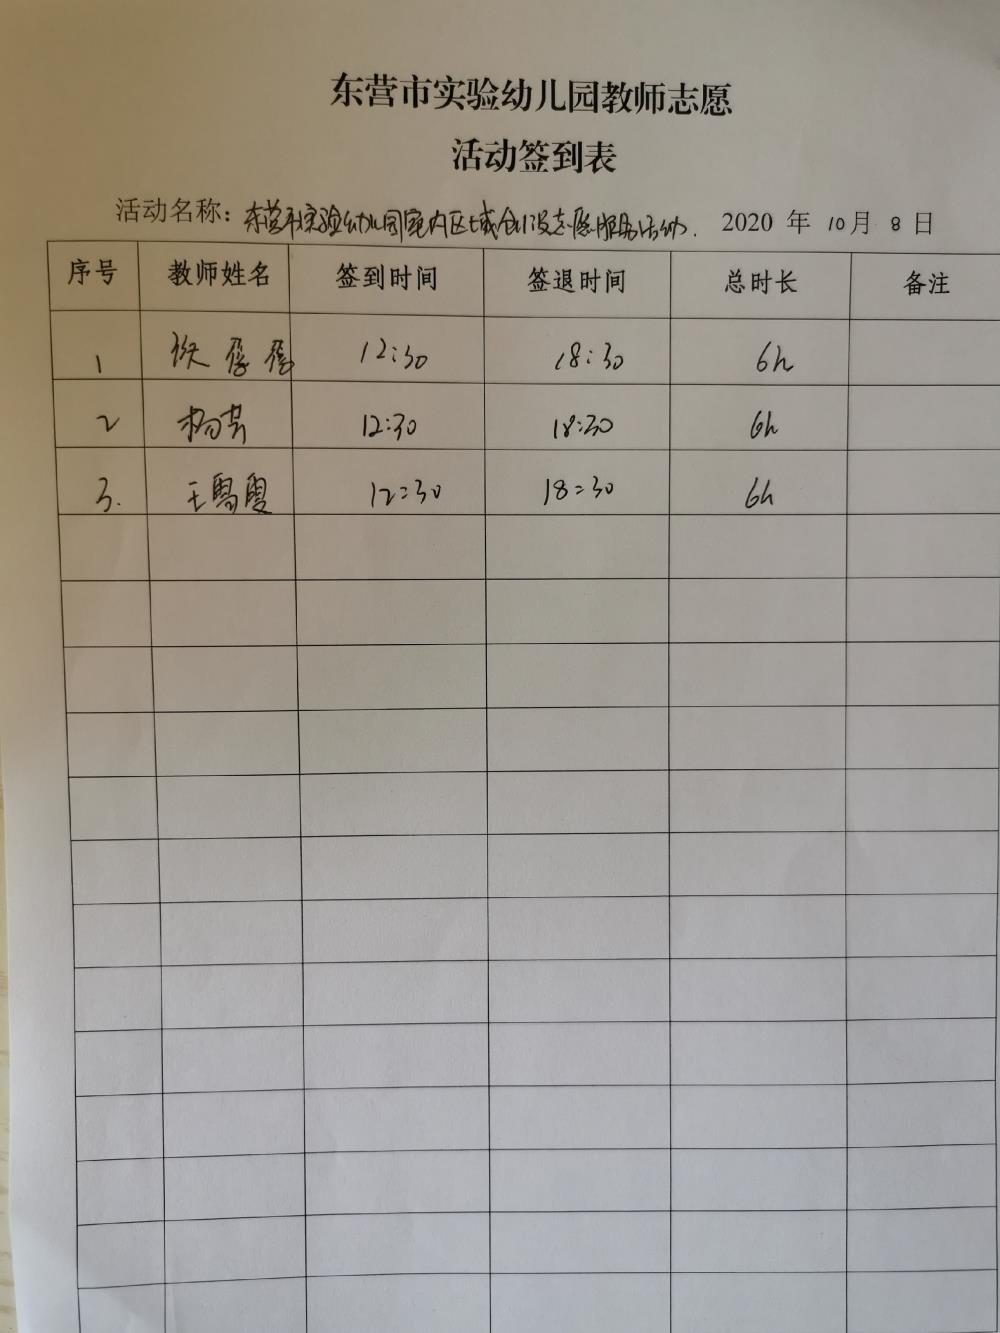 东营市实验幼儿园教师志愿
活动签到表
活动名称：东营市实验幼儿园室内区域创设志愿服务活动. 2020 年 10月 8 日
序号 教师姓名 签到时间 签退时间 总时长 备注
1 12:30 18:30 6h
2 杨芳 12:30 18:30 6h
3. 王雪 12:30 18:30 6h